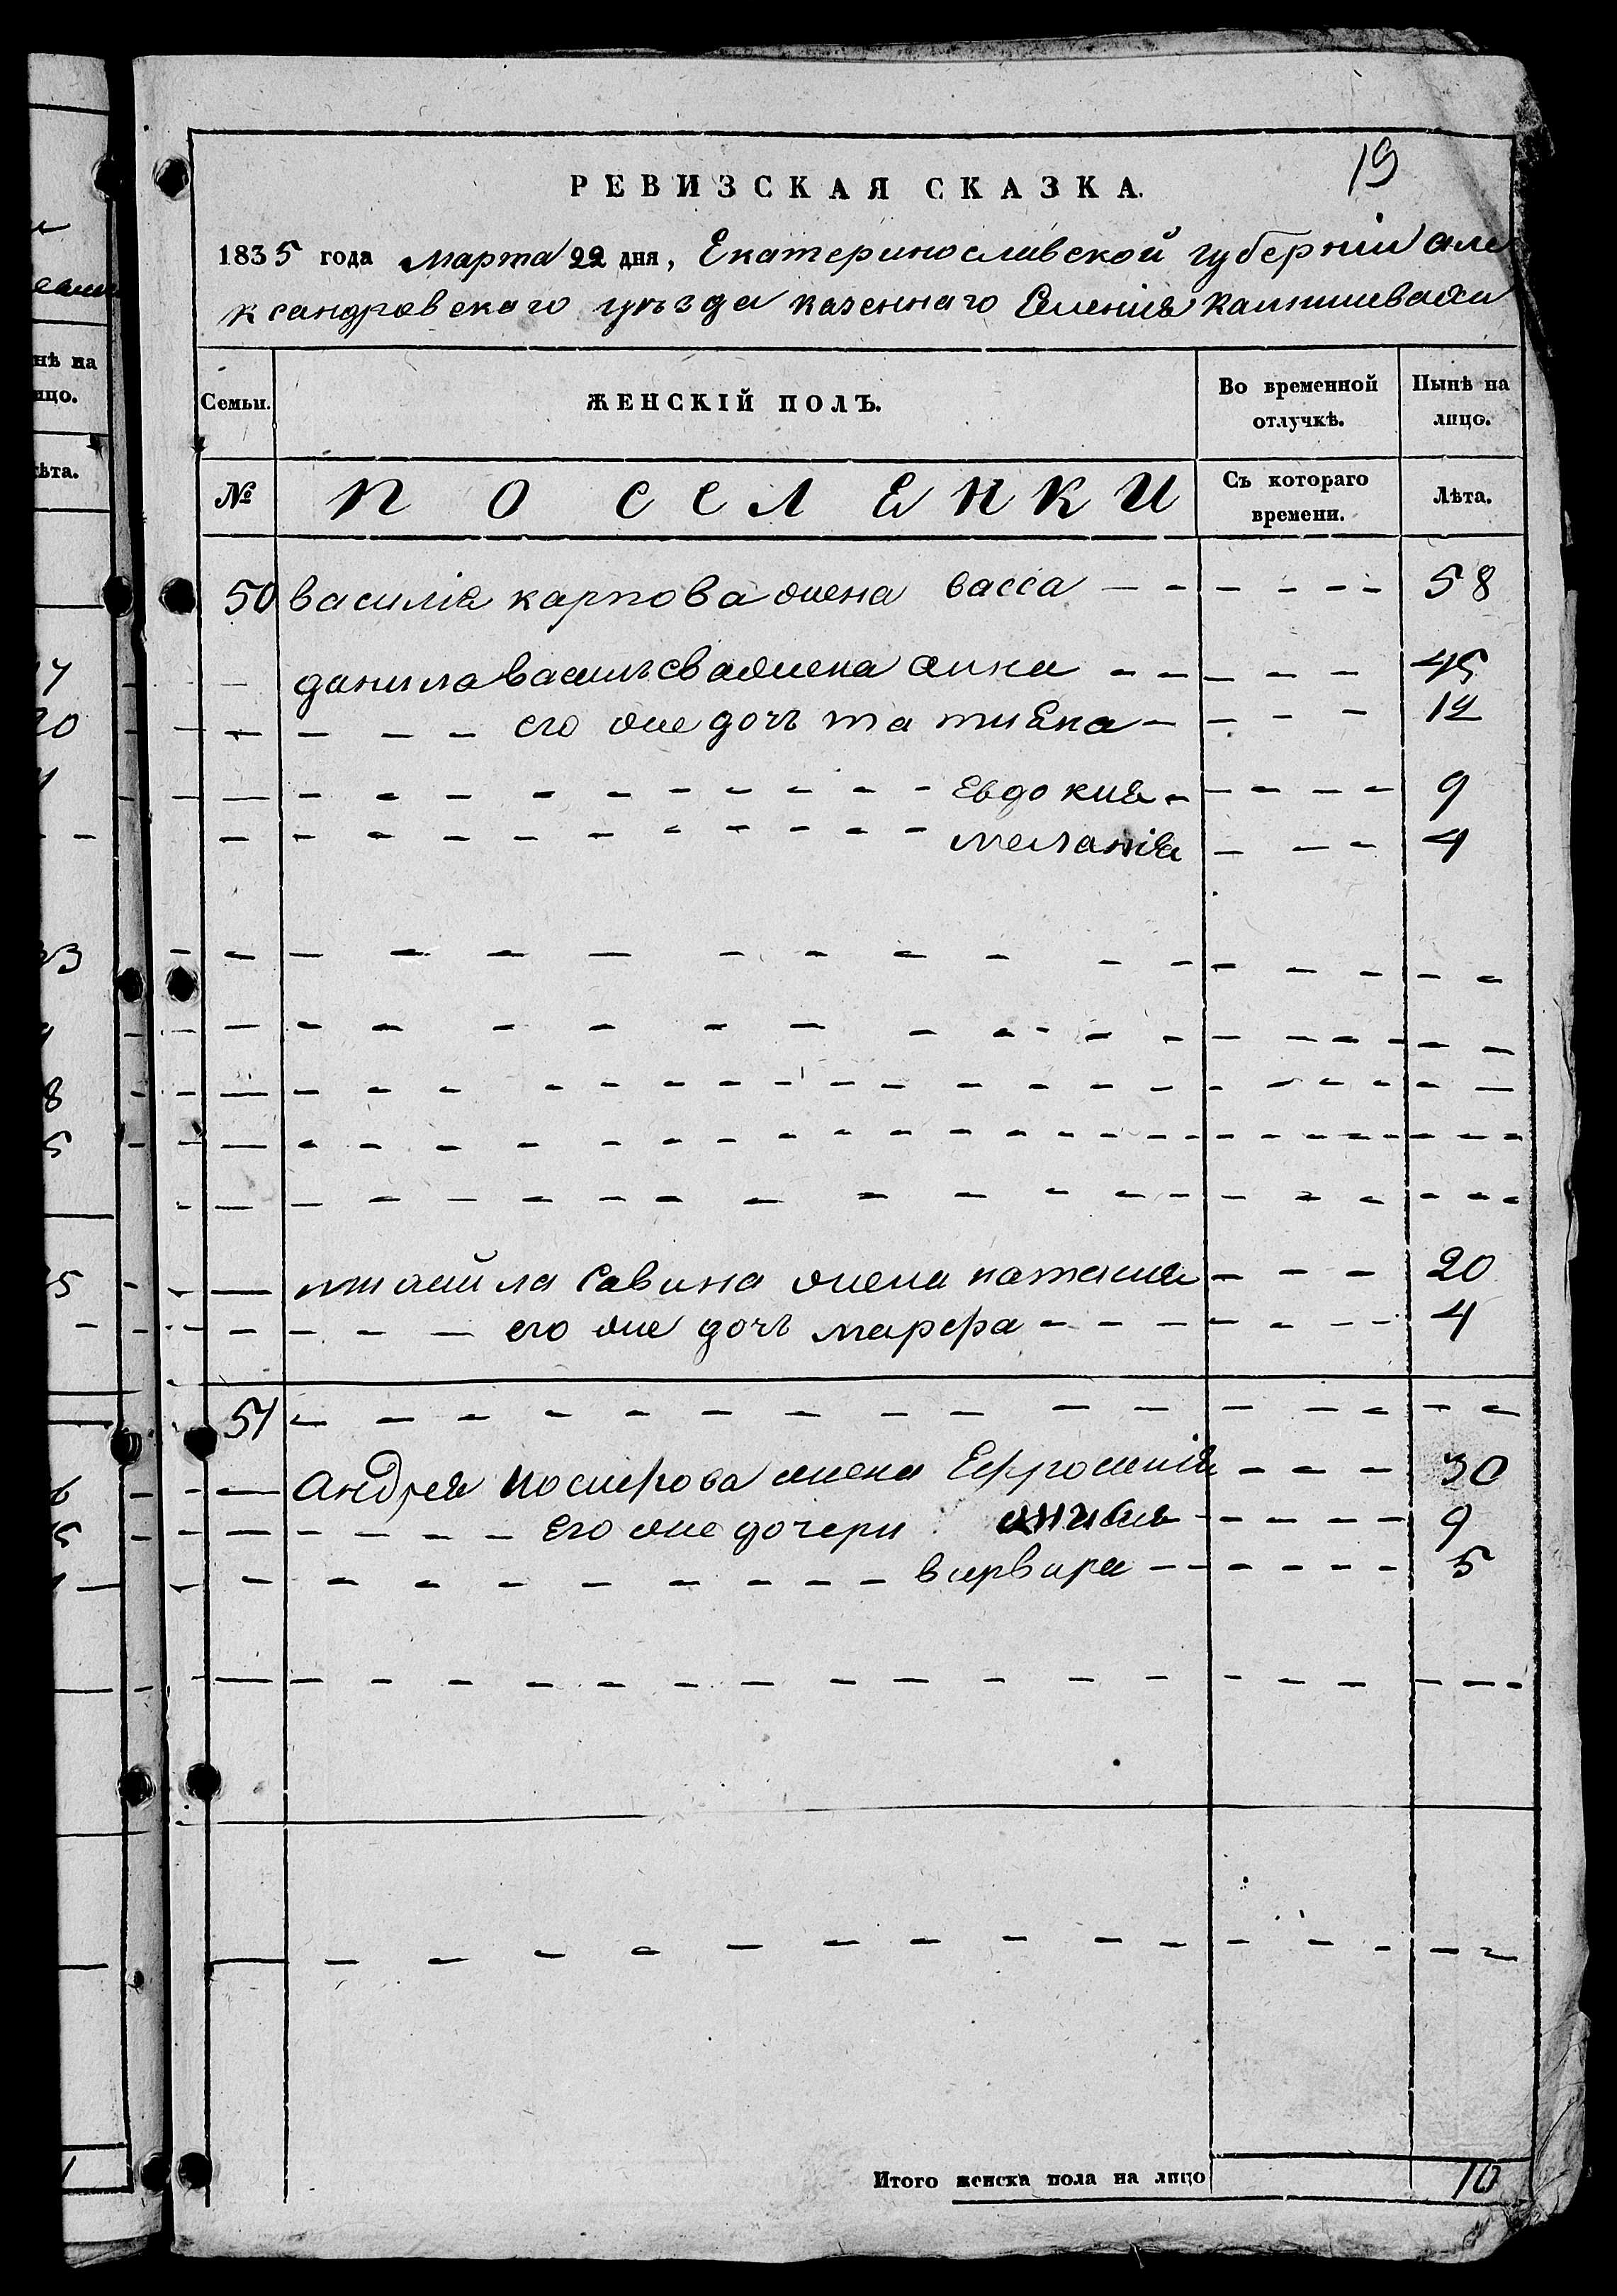 19
РЕВИЗСКАЯ СКАЗКА.
1835 года марта 22 дня, Екатеринославской губерніи але
ксандровскаго уѣзда казеннаго Селенія
Семьи. ЖЕНСКІЙ ПОЛЪ. Во временной отлучкѣ. Нынѣ на лицо.
№ ПОСЕЛЕНКИ Съ котораго времени. Лѣта.
50 василія карпова жена васса 58
данила васильева жена анна 45
его же дочь татиена 12
Евдокия 9
меланія 4
михайла Савина жена наталия 20
его же дочь марфа 4
51
Андрея жена Ефросинія 30
его же дочери 9
варвара 5
Итого женска пола на лицо 10
нѣ на
ицо.
ѣта.